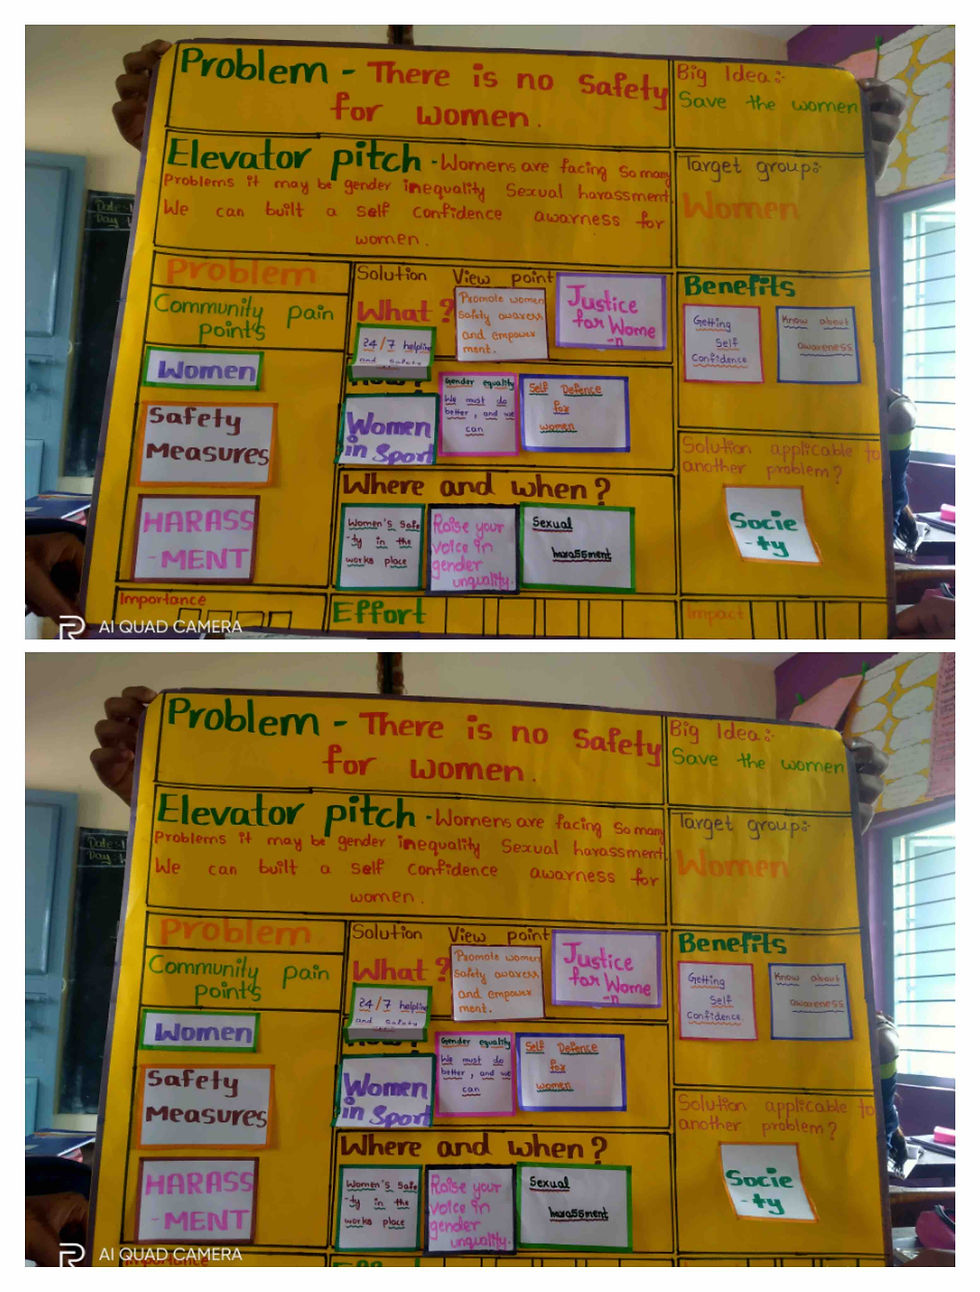 Problem - There is no Safety
for women.
Big Idea:-
Save the women
Elevator pitch - Womens are facing so many
Problems it may be gender inequality Sexual harassment.
We can built a self confidence awarness for
women.
Target group:-
Women
Problem
Community pain
points
Women
Safety
Measures
HARASS
-MENT
Solution View point
What ?
Promote women
safety awaress
and empower
ment.
Justice
for Wome
-n
24/7 helpline
and Safety
How?
Gender equality
We must do
better, and we
can
Self Defence
for
women
Women
in Sport
Where and when?
Women's Safe
-ty in the
works place
Raise your
voice in
gender
unquality.
Sexual
harassment
Benefits
Getting
Self
Confidence
Know about
awareness
Solution applicable to
another problem?
Socie
-ty
Importance
Effort
Impact
AI QUAD CAMERA
Date:
Day:
Problem - There is no Safety
for women.
Big Idea:-
Save the women
Elevator pitch - Womens are facing so many
Problems it may be gender inequality Sexual harassment.
We can built a self confidence awarness for
women.
Target group:-
Women
Problem
Community pain
points
Women
Safety
Measures
HARASS
-MENT
Solution View point
What ?
Promote women
safety awaress
and empower
ment.
Justice
for Wome
-n
24/7 helpline
and Safety
How?
Gender equality
We must do
better, and we
can
Self Defence
for
women
Women
in Sport
Where and when?
Women's Safe
-ty in the
works place
Raise your
voice in
gender
unquality.
Sexual
harassment
Benefits
Getting
Self
Confidence
Know about
awareness
Solution applicable to
another problem?
Socie
-ty
Importance
AI QUAD CAMERA
Date:
Day: